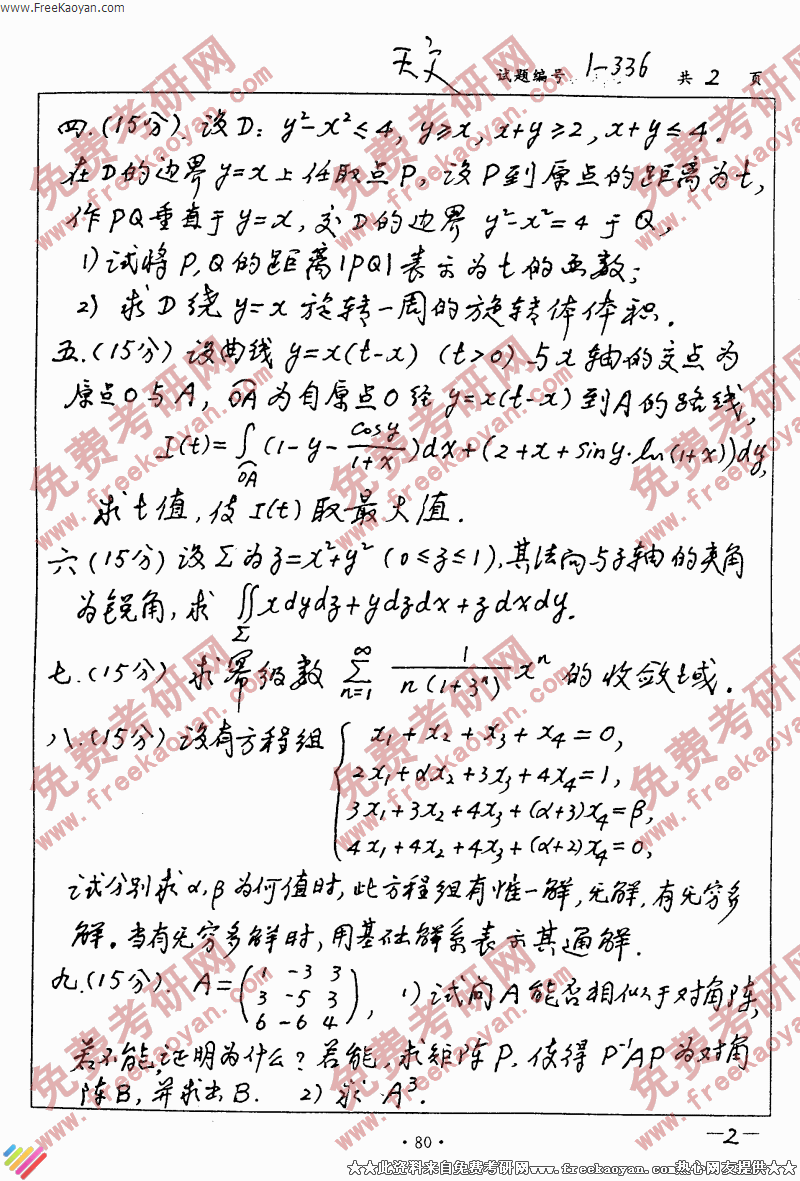 www.FreeKaoyan.com
天文 试题编号 1-336 共 2 页
四.(15分).设D: y²-x²≤4, y≥x, x+y≥2, x+y≤4.
在D的边界y=x上任取点P,设P到原点的距离为t,
作PQ垂直于y=x,交D的边界 y²-x²=4于Q,
1)试将P,Q的距离|PQ|表示为t的函数;
2) 求D绕y=x旋转一周的旋转体体积.
五.(15分)设曲线 y=x(t-x) (t>0) 与x轴的交点为
原点O与A, O͡A为自原点O经y=x(t-x)到A的路线,
I(t)=∫_{O͡A}(1-y-cosy/(1+x))dx+(2+x+siny·ln(1+x))dy,
求t值,使I(t)取最大值.
六(15分)设Σ为z=x²+y² (0≤z≤1),其法向与z轴的夹角
为锐角,求 ∬_Σ xdydz+ydzdx+zdxdy.
七.(15分) 求幂级数 ∑_{n=1}^{∞} 1/(n(1+3ⁿ)) xⁿ 的收敛域.
八.(15分)设有方程组 { x₁+x₂+x₃+x₄=0,
2x₁+αx₂+3x₃+4x₄=1,
3x₁+3x₂+4x₃+(α+3)x₄=β,
4x₁+4x₂+4x₃+(α+2)x₄=0,
试分别求α,β为何值时,此方程组有惟一解,无解,有无穷多
解.当有无穷多解时,用基础解系表示其通解.
九.(15分). A=(1 -3 3
3 -5 3
6 -6 4), 1)试问A能否相似于对角阵,
若不能,证明为什么?若能,求矩阵P,使得P⁻¹AP为对角
阵B,并求出B. 2)求A³.
—2—
·80·
★★此资料来自免费考研网www.freekaoyan.com热心网友提供★★
免费考研网
www.freekaoyan.com